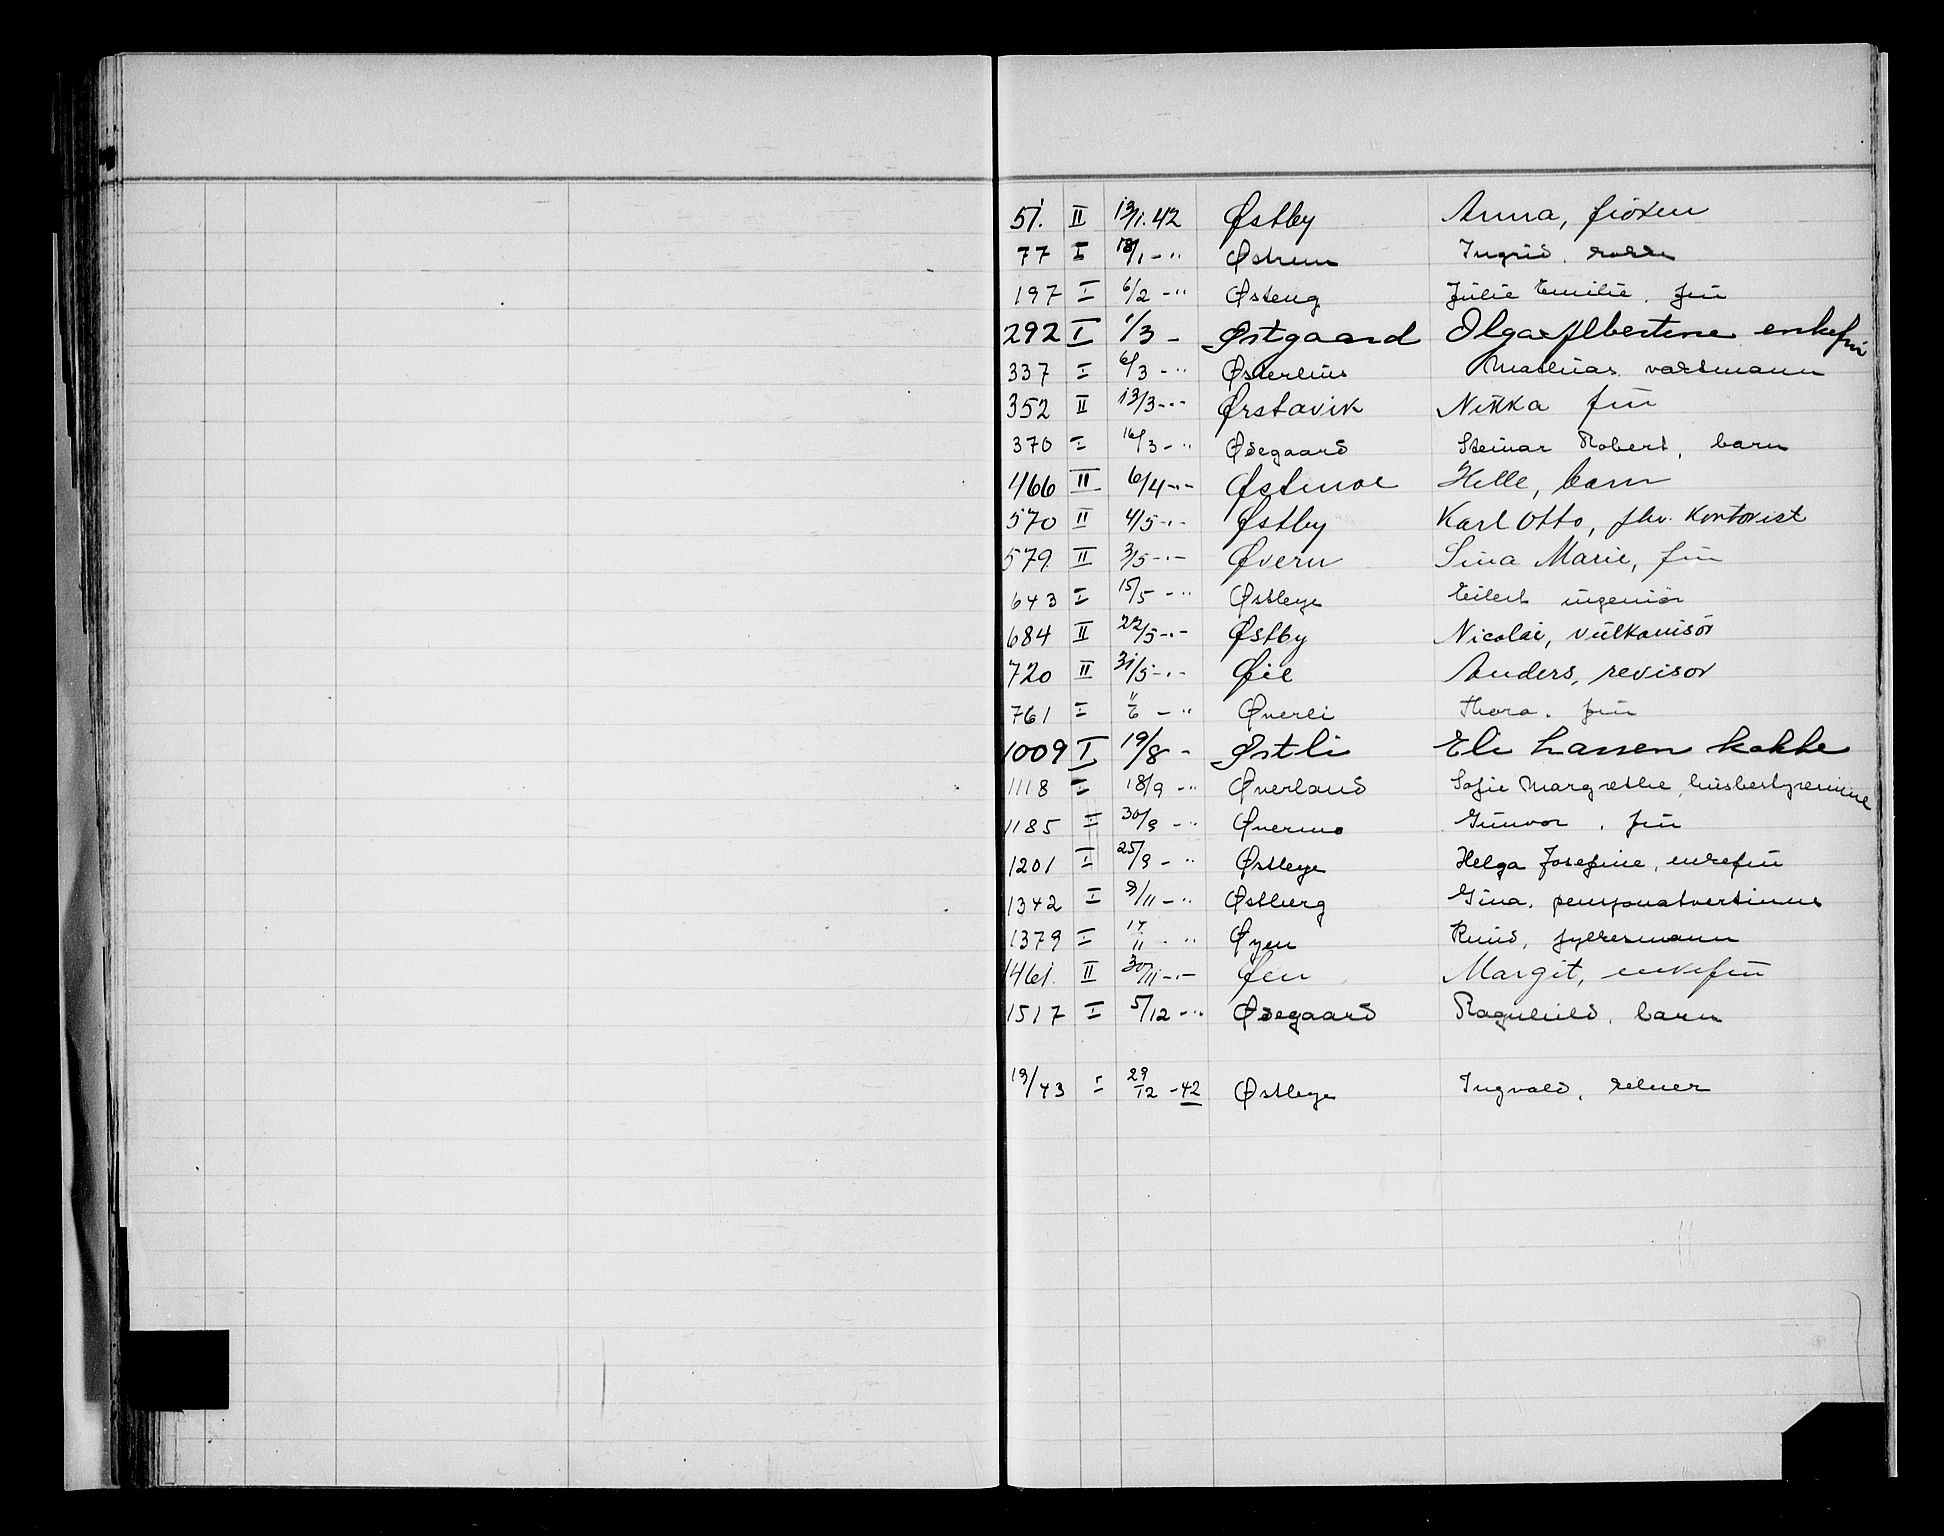 51. II 13/1. 42 Østby Anna, frøken
77 I 18/1 - " Østrem Ingrid, kokke
197 I 6/2 - " Østeng Julie Emilie, fru
292 I 1/3 - Østgaard Olga Albertine enkefru
337 I 6/3 - " Østerlius Mathias vaktmann
352 II 13/3 - " - Ørstavik Nikka fru
370 I 16/3 - " Ødegaard Steinar Robert, barn
466 II 6/4 - " - Østmoe Helle, barn
570 II 4/5 - " - Østby Karl Otto, fhv. kontorist
579 II 3/5 - " - Øvern Lina Marie, fru
643 I 15/5 - " Østbye Eilert ingeniør
684 II 22/5 - " - Østby Nicolai, vulkanisør
720 II 31/5 - " - Øie Anders, revisor
761 I 11/6 - " Øverli Thora, fru
1009 I 19/8 - Østli Eli Larsen kokke
1118 I 18/9 - " Øverland Sofie Margrethe, husbestyrerinne
1185 I 30/9 - " Øvermo Gunvor, fru
1201 I 25/9 - " Østbye Helga Josefine, enkefru
1342 I 9/11 - " Østberg Gina, pensjonatvertinne
1379 I 14/11 - " Øyen Knud, fyllesmann
1461. II 30/11 - " - Øen Margit, enkefru
1517 I 5/12 - " Ødegaard Ragnhild, barn
19/43 I 29/12 - 42 Østbye Ingvald, kelner